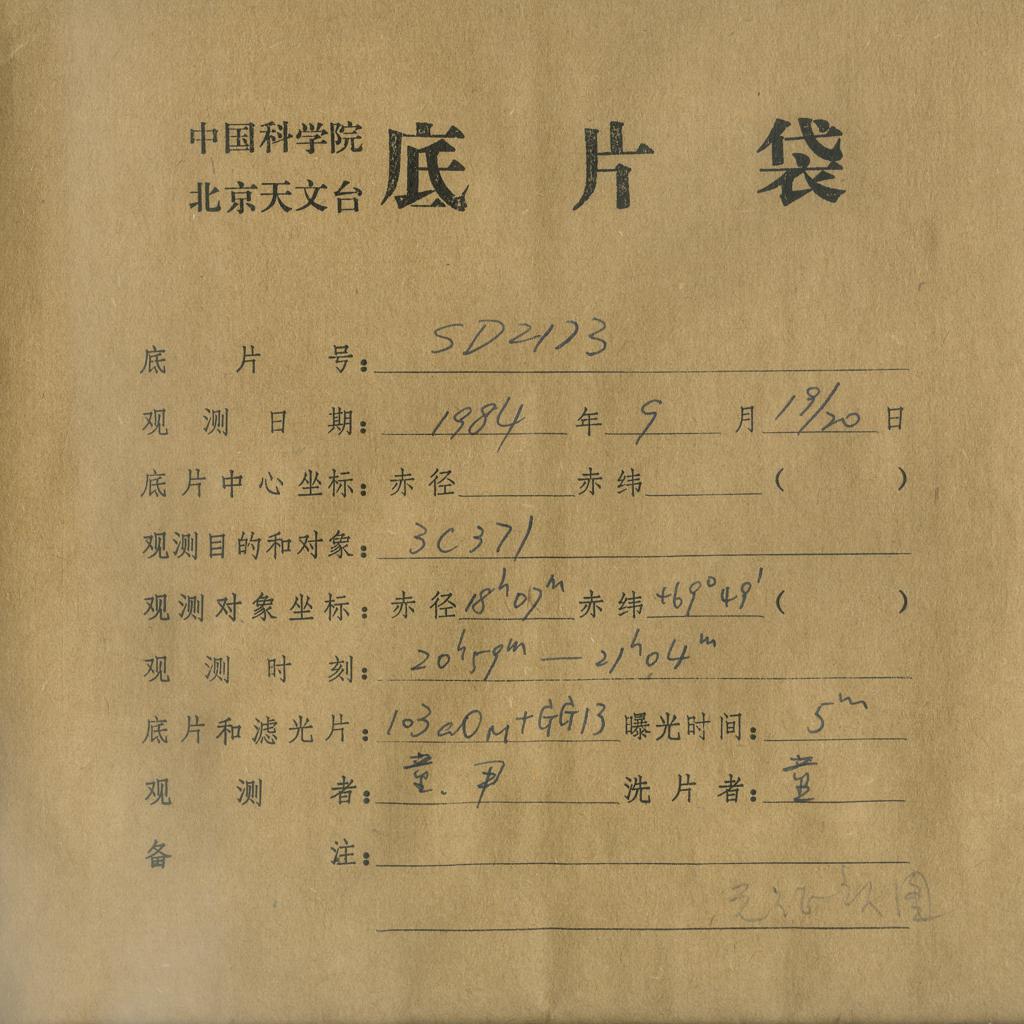 中国科学院
北京天文台
底片袋
底片号: SD2173
观测日期: 1984年9月19/20日
底片中心坐标: 赤径 赤纬 ( )
观测目的和对象: 3C371
观测对象坐标: 赤径18ʰ07ᵐ 赤纬+69°49′ ( )
观测时刻: 20ʰ59ᵐ—21ʰ04ᵐ
底片和滤光片: 103aO +GG13 曝光时间: 5ᵐ
观测者: 童. 尹 洗片者: 童
备注: